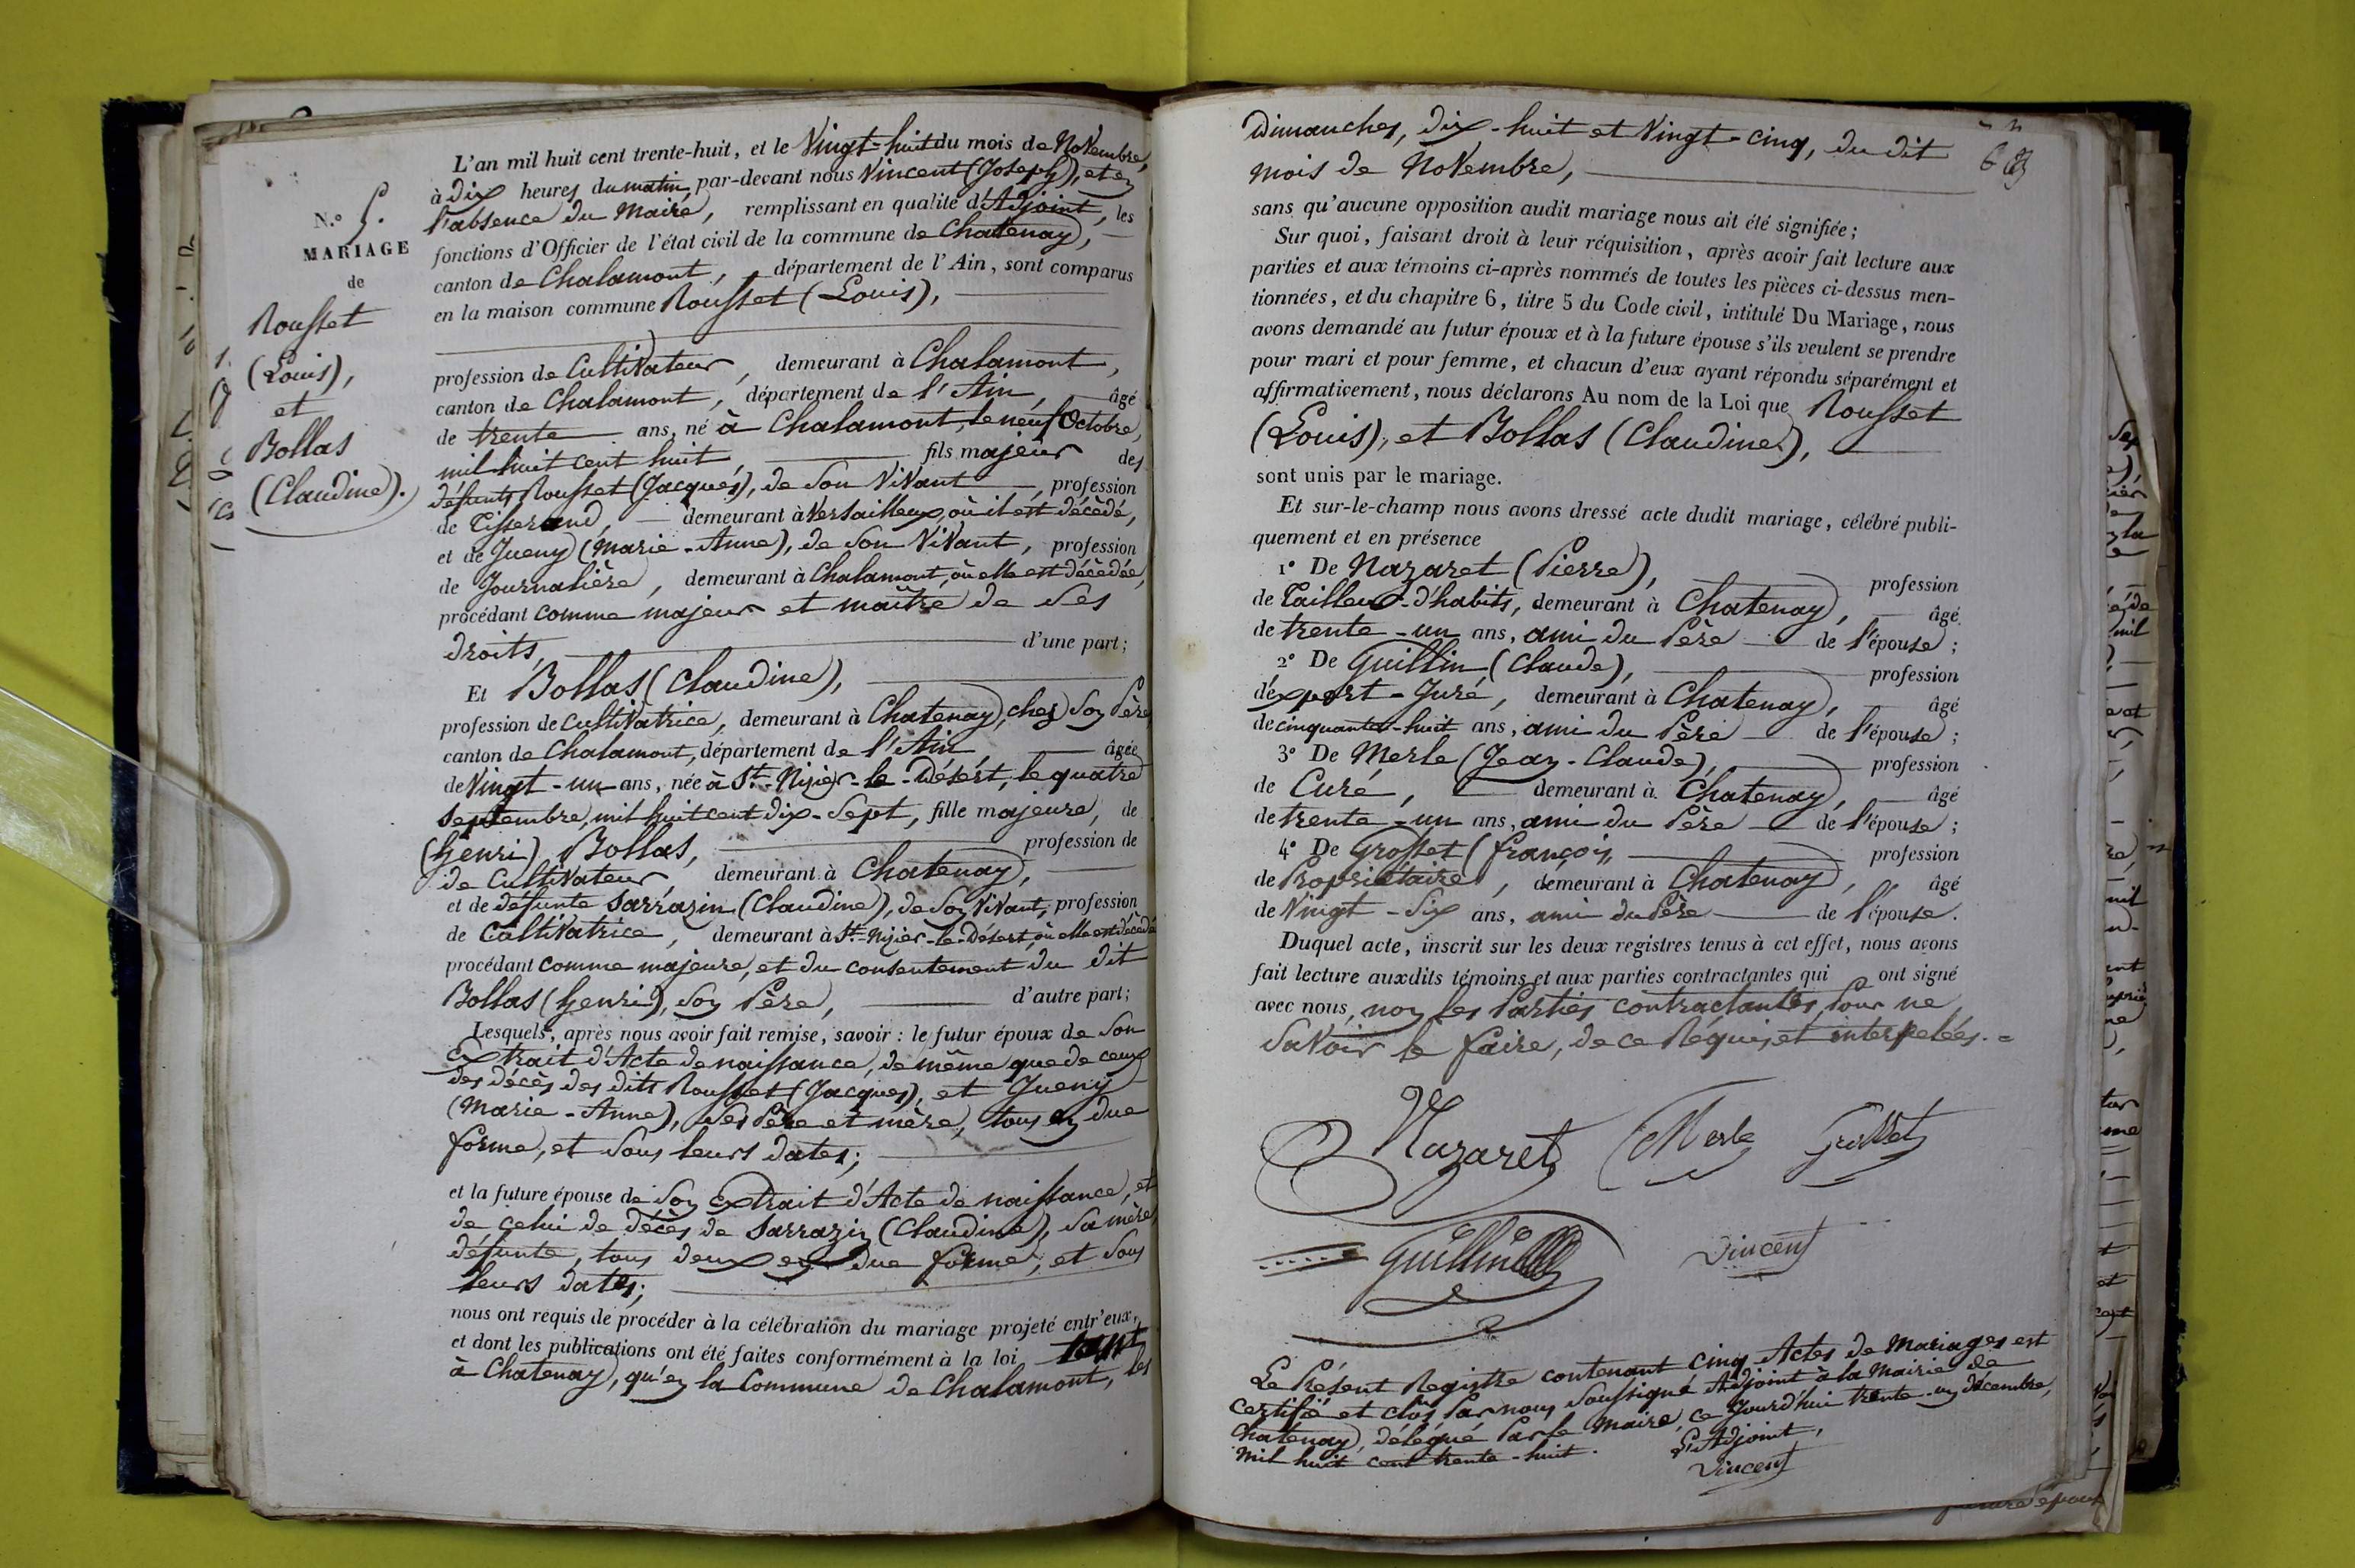 N.º 5.
MARIAGE
de
Rousset
(Louis),
et
Bollas
(Claudine).
L'an mil huit cent trente-huit, et le Vingt-huit du mois de Novembre,
à Dix heures du matin, par-devant nous Vincent (Joseph), et en
l'absence du Maire, remplissant en qualité d'Adjoint, les
fonctions d'Officier de l'état civil de la commune de Chatenay,
canton de Chalamont, département de l'Ain, sont comparus
en la maison commune Rousset (Louis),
profession de Cultivateur, demeurant à Chalamont,
canton de Chalamont, département de l'Ain, âgé
de trente ans, né à Chalamont, le neuf Octobre,
mil huit cent huit fils majeur des
défunts Rousset (Jacques), de son Vivant, profession
de Tisserand, demeurant à Versailleux, où il est décédé,
et de Jueny (Marie-Anne), de son Vivant, profession
de Journalière, demeurant à Chalamont, où elle est décédée,
procédant comme majeur et maître de ses
droits, d'une part;
Et Bollas (Claudine),
profession de Cultivatrice, demeurant à Chatenay, chez son Père
canton de Chalamont, département de l'Ain âgée
de Vingt-un ans, née à St-Nizier-le-Désert, le quatre
Septembre, mil huit cent dix-sept, fille majeure, de
(henri) Bollas, profession de
de Cultivateur demeurant à Chatenay,
et de défunte Sarrazin (Claudine), de son Vivant, profession
de Cultivatrice, demeurant à St-Nizier-le-Désert, où elle est décédée
procédant comme majeure, et du consentement du dit
Bollas (henri), son Père, d'autre part;
Lesquels, après nous avoir fait remise, savoir : le futur époux de son
extrait d'Acte de naissance, de même que de ceux
des décès des dits Rousset (Jacques), et Jueny
(Marie-Anne), ses Père et mère, tous en due
forme, et sous leurs dates;
et la future épouse de son extrait d'Acte de naissance, et
de celui de décès de Sarrazin (Claudine), sa mère
défunte, tous deux en due forme, et sous
leurs dates;
nous ont requis de procéder à la célébration du mariage projeté entr'eux,
et dont les publications ont été faites conformément à la loi tant
à Chatenay, qu'en la Commune de Chalamont, les
Dimanches, dix-huit et Vingt-cinq, du dit
mois de Novembre,
sans qu'aucune opposition audit mariage nous ait été signifiée;
Sur quoi, faisant droit à leur réquisition, après avoir fait lecture aux
parties et aux témoins ci-après nommés de toutes les pièces ci-dessus men-
tionnées, et du chapitre 6, titre 5 du Code civil, intitulé Du Mariage, nous
avons demandé au futur époux et à la future épouse s'ils veulent se prendre
pour mari et pour femme, et chacun d'eux ayant répondu séparément et
affirmativement, nous déclarons Au nom de la Loi que Rousset
(Louis), et Bollas (Claudine),
sont unis par le mariage.
Et sur-le-champ nous avons dressé acte dudit mariage, célébré publi-
quement et en présence
1º De Nazaret (Pierre), profession
de Tailleur-d'habits, demeurant à Chatenay, âgé
de trente-un ans, ami du Père de l'épouse;
2º De Guillin (Claude), profession
d'expert-Juré, demeurant à Chatenay, âgé
de cinquante-huit ans, ami du Père de l'épouse;
3º De Merle (Jean-Claude), profession
de Curé, demeurant à Chatenay, âgé
de trente-un ans, ami du Père de l'épouse;
4º De Grosset (françois, profession
de Propriétaire, demeurant à Chatenay, âgé
de Vingt-Six ans, ami du Père de l'épouse.
Duquel acte, inscrit sur les deux registres tenus à cet effet, nous avons
fait lecture auxdits témoins et aux parties contractantes qui ont signé
avec nous, non les Parties contractantes, Pour ne
savoir le faire, de ce Requis, et interpelées.
Nazaret Merle Grosset
Guillin Vincent
Le Présent Registre contenant cinq Actes de Mariages est
certifié et clos Par nous soussigné Adjoint à la Mairie de
Chatenay, délégué Par le Maire, ce Jourd'hui trente-un décembre,
mil huit cent trente-huit.
L'Adjoint,
Vincent